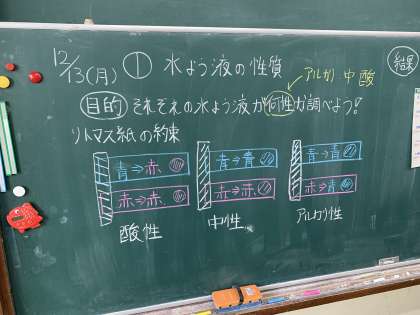 12/13(月) ① 水よう液の性質
結果
アルカリ 中 酸
目的 それぞれの水よう液が何性か調べよう!
リトマス紙の約束
青⇒赤 青⇒青 青⇒青
赤⇒赤 赤⇒赤 赤⇒青
酸性 中性 アルカリ性